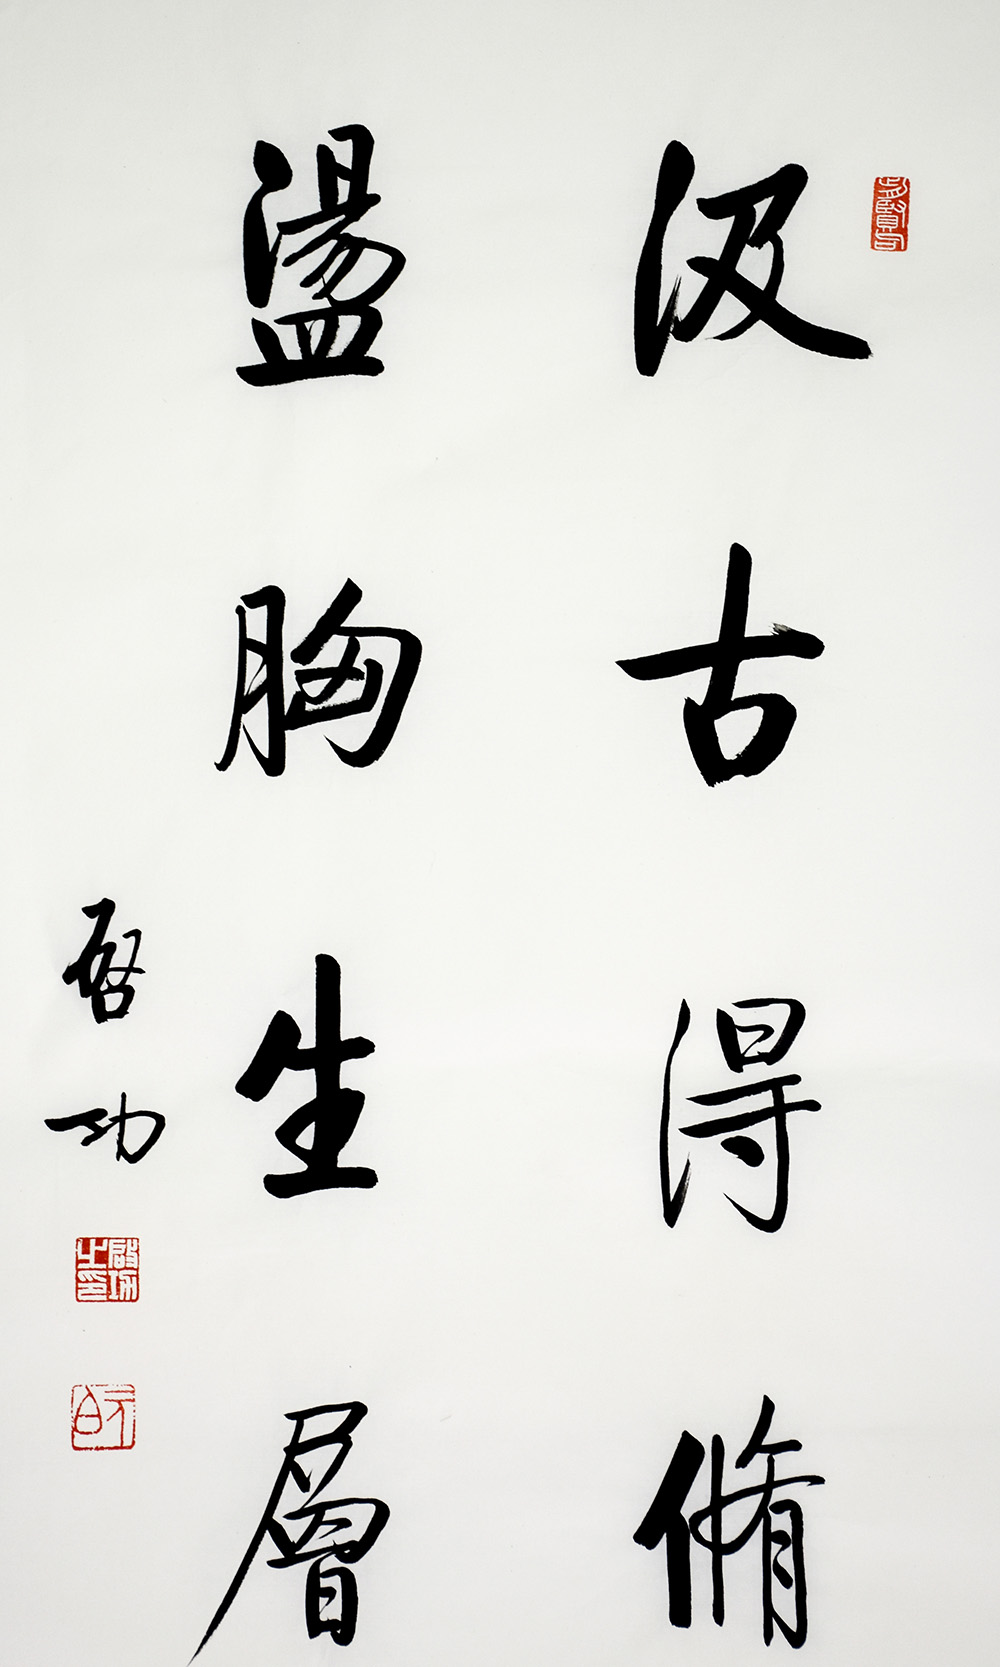 汲古得脩
盪胸生層
啓功
啓功之印